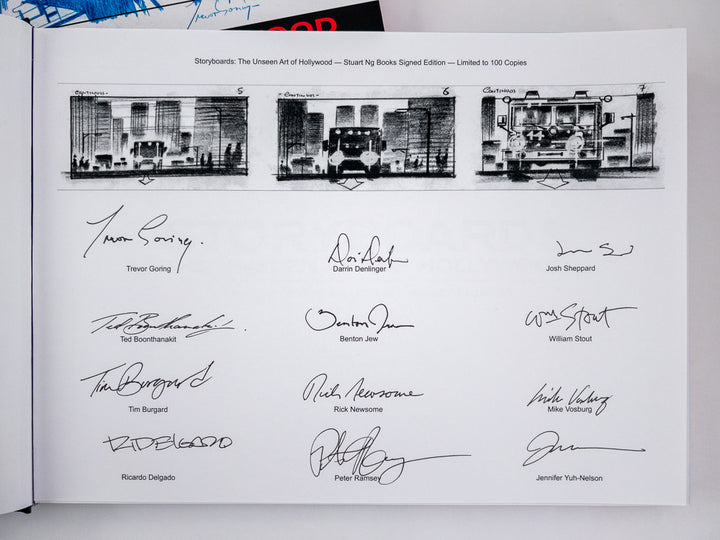 Trevor Goring
OOD
Storyboards: The Unseen Art of Hollywood — Stuart Ng Books Signed Edition — Limited to 100 Copies
Continuous 5
Continuous 6
Continuous 7
Trevor Goring.
Trevor Goring
Darrin Denlinger
Josh Sheppard
Ted Boonthanakit
Benton Jew
Wm Stout
Ted Boonthanakit
Benton Jew
William Stout
Tim Burgard
Rick Newsome
Mike Vosburg
Tim Burgard
Rick Newsome
Mike Vosburg
R DELGADO
Ricardo Delgado
Peter Ramsey
Jennifer Yuh-Nelson